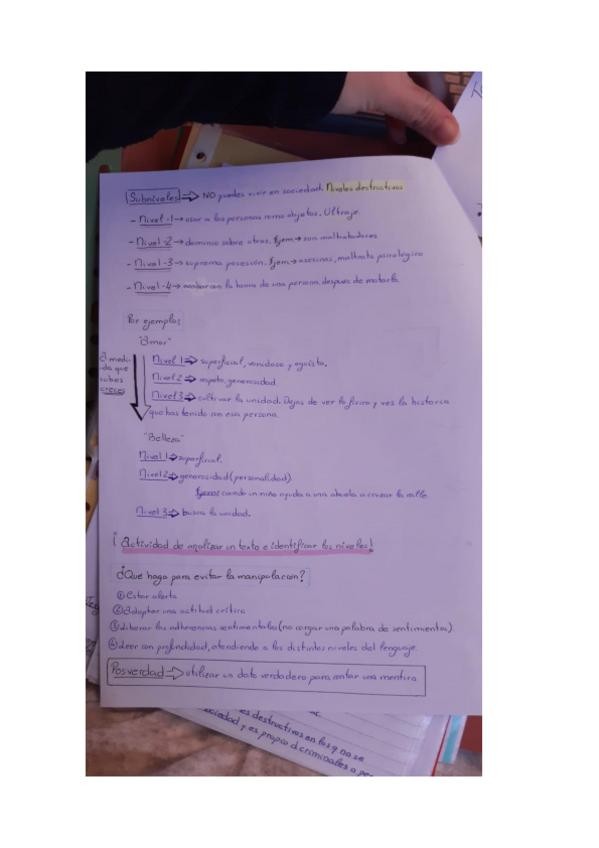 Subniveles ⇒ NO puedes vivir en sociedad. Niveles destructivos
- Nivel -1 → usar a las personas como objetos. Ultraje.
- Nivel -2 → dominio sobre otros. Ejem → son maltratadores
- Nivel -3 → suprema posesión. Ejem → asesinos, maltrato psicológico
- Nivel -4 → acabar con la fama de una persona después de matarla.
Por ejemplo:
"Amor"
A medi-
da que
subes
creces
Nivel 1 ⇒ superficial, vanidoso y egoísta.
Nivel 2 ⇒ respeto, generosidad
Nivel 3 ⇒ cultivar la unidad. Dejas de ver lo físico y ves la historia
que has tenido con esa persona.
"Belleza"
Nivel 1 ⇒ superficial.
Nivel 2 ⇒ generosidad (personalidad)
cuando un niño ayuda a una abuela a cruzar la calle.
Nivel 3 ⇒ busca la unidad.
¡Actividad de analizar un texto e identificar los niveles!
¿Que hago para evitar la manipulación?
① Estar alerta
② Adoptar una actitud crítica
③ liberar las adherencias sentimentales (no cargar una palabra de sentimientos).
④ Leer con profundidad, atendiendo a los distintos niveles del lenguaje.
Posverdad ⇒ utilizar un dato verdadero para contar una mentira
es destructivos en los q no se
sociedad y es propio d criminales o